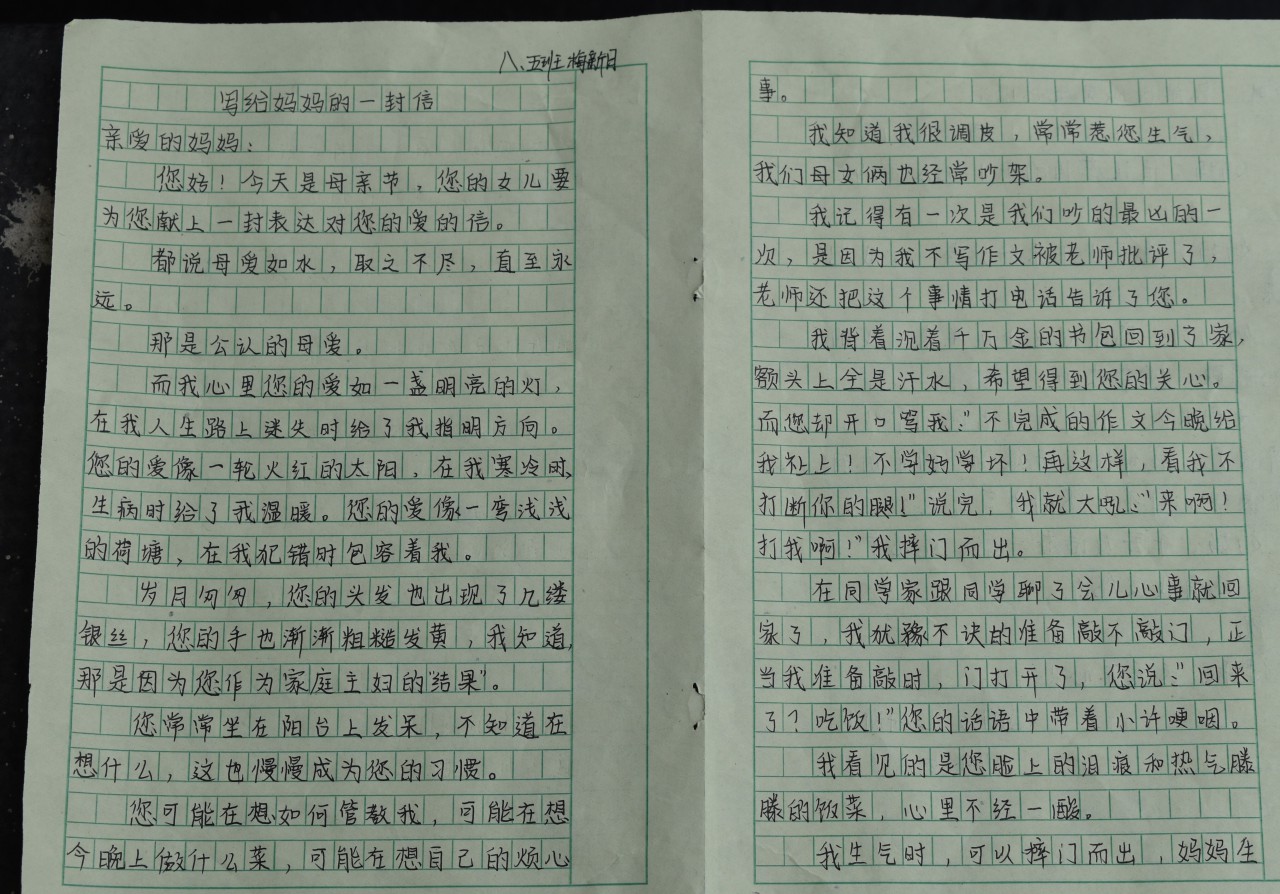 八、五班 梅新日
写给妈妈的一封信
亲爱的妈妈：
您好！今天是母亲节，您的女儿要
为您献上一封表达对您的爱的信。
都说母爱如水，取之不尽，直至永
远。
那是公认的母爱。
而我心里您的爱如一盏明亮的灯，
在我人生路上迷失时给了我指明方向。
您的爱像一轮火红的太阳，在我寒冷时、
生病时给了我温暖。您的爱像一弯浅浅
的荷塘，在我犯错时包容着我。
岁月匆匆，您的头发也出现了几缕
银丝，您的手也渐渐粗糙发黄，我知道，
那是因为您作为家庭主妇的"结果"。
您常常坐在阳台上发呆，不知道在
想什么，这也慢慢成为您的习惯。
您可能在想如何管教我，可能在想
今晚上做什么菜，可能在想自己的烦心
事。
我知道我很调皮，常常惹您生气，
我们母女俩也经常吵架。
我记得有一次是我们吵的最凶的一
次，是因为我不写作文被老师批评了，
老师还把这个事情打电话告诉了您。
我背着沉着千万金的书包回到了家，
额头上全是汗水，希望得到您的关心。
而您却开口骂我："不完成的作文今晚给
我补上！不学好学坏！再这样，看我不
打断你的腿！"说完，我就大吼："来啊！
打我啊！"我摔门而出。
在同学家跟同学聊了会儿心事就回
家了，我犹豫不诀的准备敲不敲门，正
当我准备敲时，门打开了，您说："回来
了？吃饭！"您的话语中带着小许哽咽。
我看见的是您脸上的泪痕和热气滕
滕的饭菜，心里不经一酸。
我生气时，可以摔门而出，妈妈生